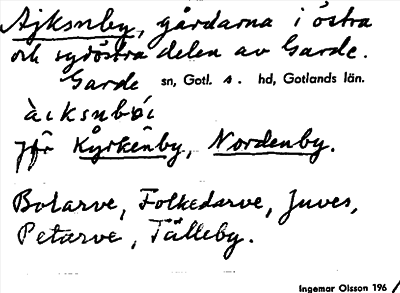 Ajksnby, gårdarna i östra
och sydöstra delen av Garde.
Garde sn, Gotl. s. hd, Gotlands län.
àɩksnbói
jfr Kyrkenby, Nordenby.
Botarve, Folkedarve, Juves,
Petarve, Tälleby.
Ingemar Olsson 196